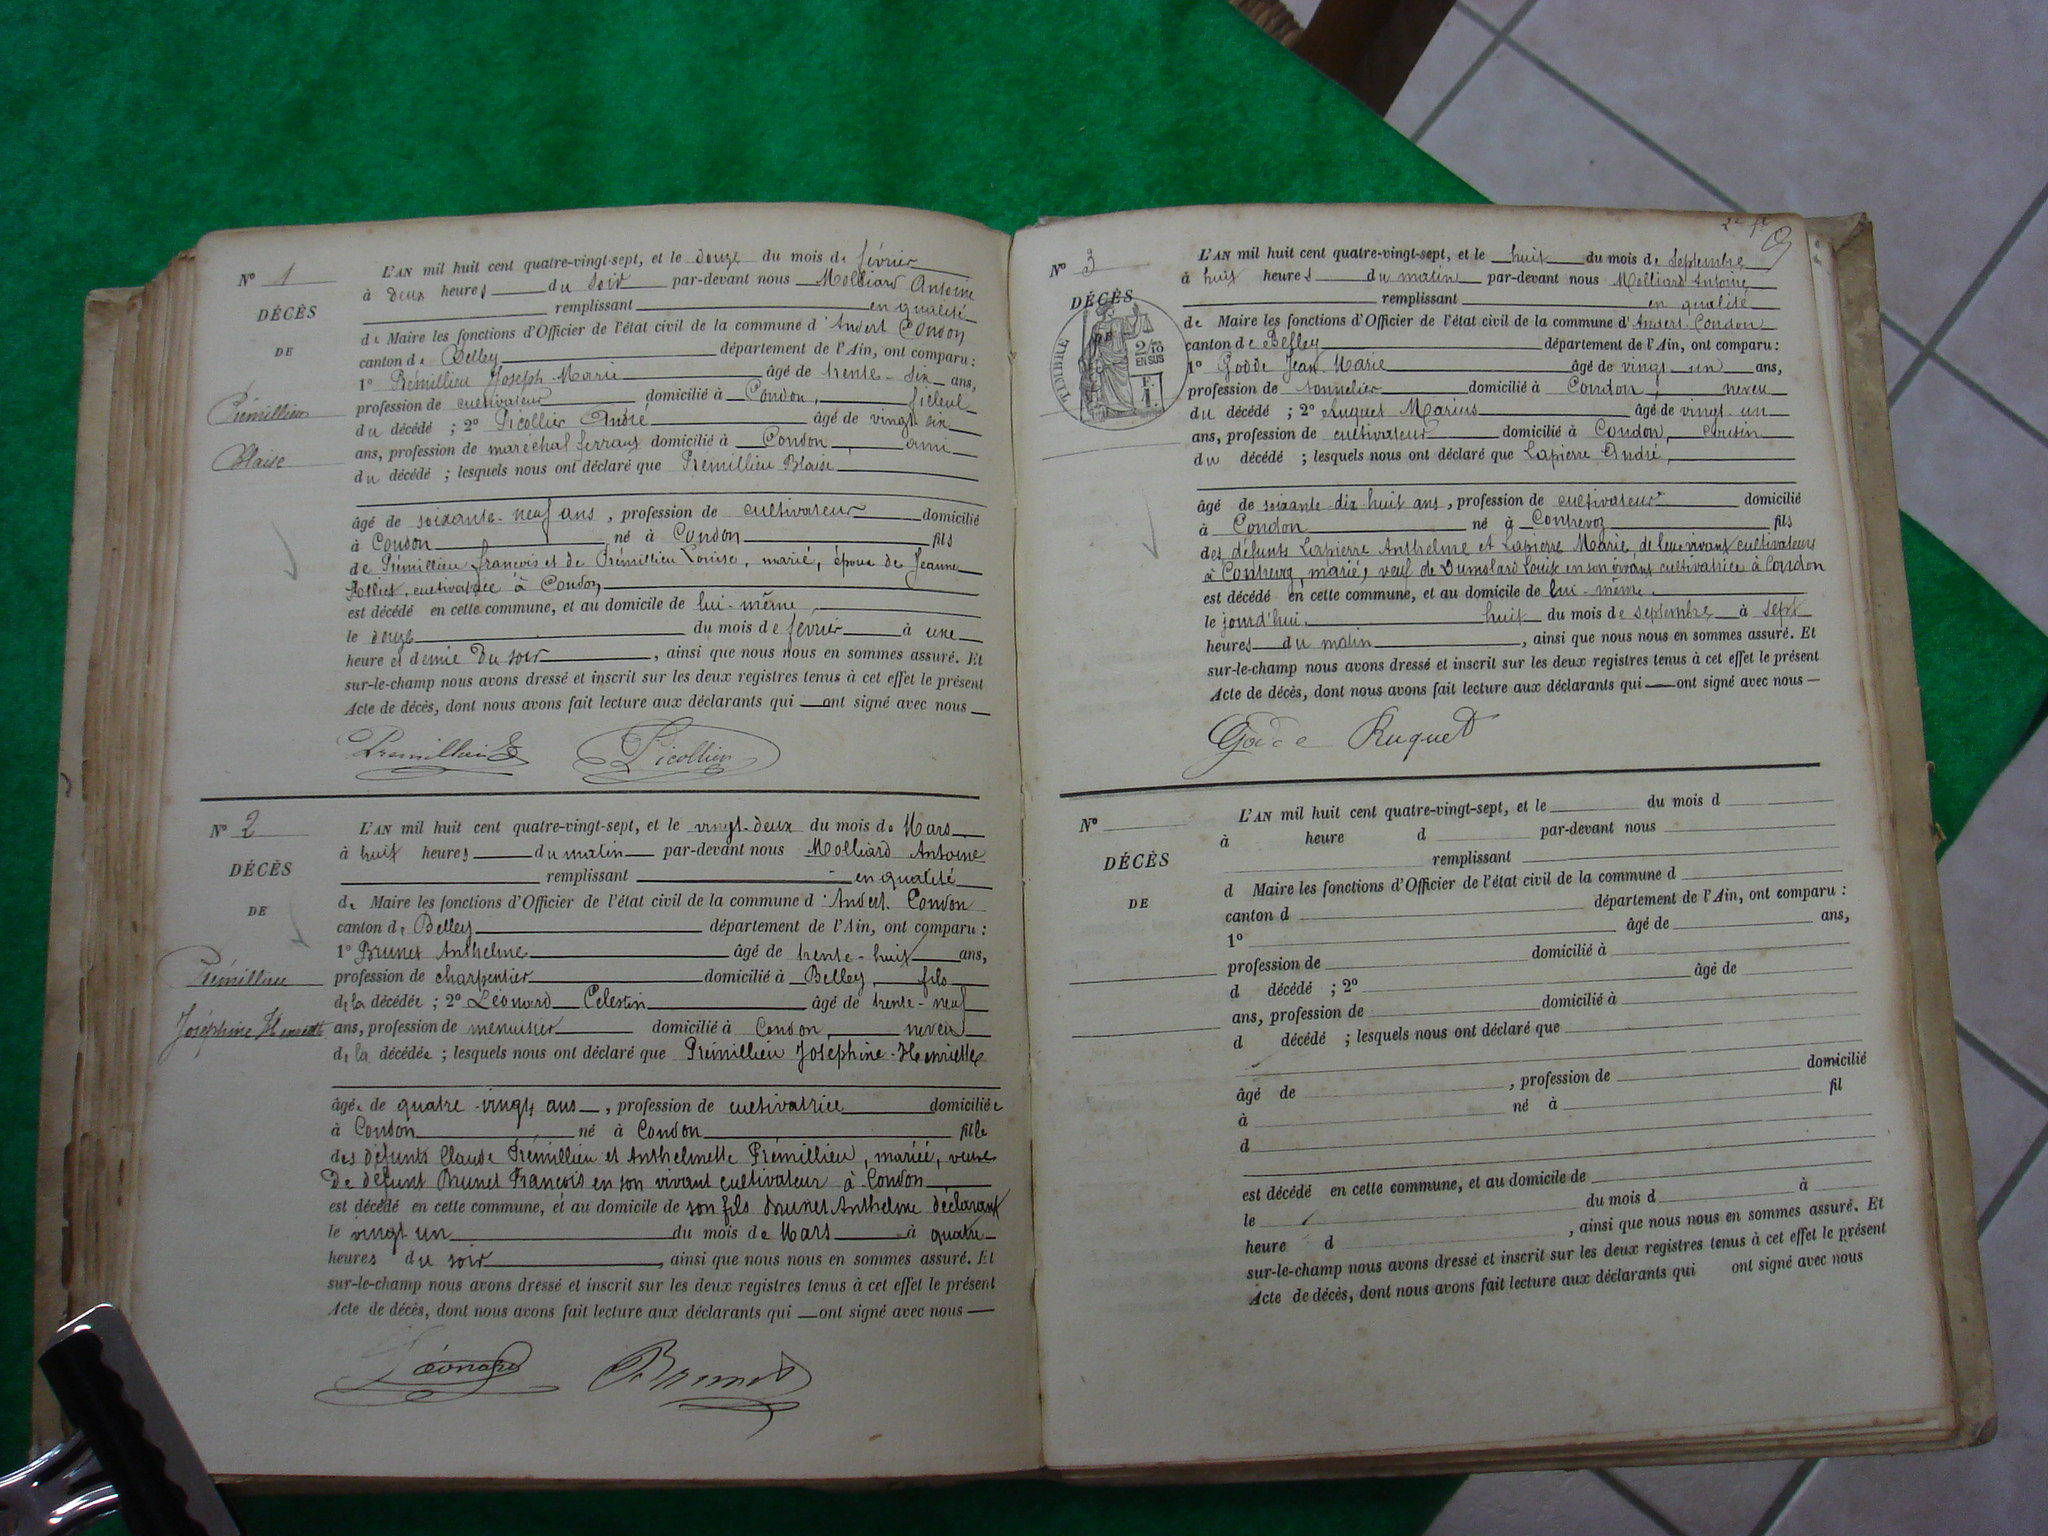 N° 1
DÉCÈS
DE
Prémillieu
Blaise
L'AN mil huit cent quatre-vingt-sept, et le douze du mois de février
à deux heures du soir par-devant nous Molliard Antoine
remplissant en qualité
de Maire les fonctions d'Officier de l'état civil de la commune d'Andert Condon
canton de Belley département de l'Ain, ont comparu :
1° Prémillieu Joseph-Marie âgé de trente-six ans,
profession de cultivateur domicilié à Condon, filleul
du décédé ; 2° Picollier André âgé de vingt six
ans, profession de maréchal ferrant domicilié à Condon, ami
du décédé ; lesquels nous ont déclaré que Prémillieu Blaise
âgé de soixante-neuf ans, profession de cultivateur domicilié
à Condon né à Condon fils
de Prémillieu françois et de Prémillieu Louise, marié, époux de Jeanne
cultivatrice à Condon
est décédé en cette commune, et au domicile de lui-même,
le douze du mois de février à une
heure et demie du soir, ainsi que nous nous en sommes assuré. Et
sur-le-champ nous avons dressé et inscrit sur les deux registres tenus à cet effet le présent
Acte de décès, dont nous avons fait lecture aux déclarants qui ont signé avec nous
Premillieu Picollier
N° 2
DÉCÈS
DE
Prémillieu
Joséphine Henriette
L'AN mil huit cent quatre-vingt-sept, et le vingt-deux du mois de Mars
à huit heures du matin par-devant nous Molliard Antoine
remplissant en qualité
de Maire les fonctions d'Officier de l'état civil de la commune d'Andert-Condon
canton de Belley département de l'Ain, ont comparu :
1° Brunet Anthelme âgé de trente-huit ans,
profession de charpentier domicilié à Belley, fils
de la décédée ; 2° Léonard Célestin âgé de trente-neuf
ans, profession de menuisier domicilié à Condon, neveu
de la décédée ; lesquels nous ont déclaré que Prémillieu Joséphine-Henriette
âgée de quatre-vingt ans, profession de cultivatrice domiciliée
à Condon né à Condon fille
des défunts Claude Prémillieu et Anthelmette Prémillieu, mariée, veuve
de défunt Brunet François en son vivant cultivateur à Condon
est décédé en cette commune, et au domicile de son fils Brunet Anthelme déclarant
le vingt un du mois de Mars à quatre
heures du soir, ainsi que nous nous en sommes assuré. Et
sur-le-champ nous avons dressé et inscrit sur les deux registres tenus à cet effet le présent
Acte de décès, dont nous avons fait lecture aux déclarants qui ont signé avec nous
Léonard Brunet
N° 3
DÉCÈS
DE
TIMBRE
2/10
EN SUS
L'AN mil huit cent quatre-vingt-sept, et le huit du mois de septembre
à huit heures du matin par-devant nous Molliard Antoine
remplissant en qualité
de Maire les fonctions d'Officier de l'état civil de la commune d'Andert-Condon
canton de Belley département de l'Ain, ont comparu :
1° Godde Jean Marie âgé de vingt-un ans,
profession de tonnelier domicilié à Condon, neveu
du décédé ; 2° Ruquet Marius âgé de vingt-un
ans, profession de cultivateur domicilié à Condon, cousin
du décédé ; lesquels nous ont déclaré que Lapierre André,
âgé de soixante-dix-huit ans, profession de cultivateur domicilié
à Condon né à Contrevoz fils
des défunts Lapierre Anthelme et Lapierre Marie, de leur vivant cultivateurs
à Contrevoz, marié, veuf de Dumolard Louise en son vivant cultivatrice à Condon
est décédé en cette commune, et au domicile de lui-même.
le jourd'hui, huit du mois de septembre à sept
heures du matin, ainsi que nous nous en sommes assuré. Et
sur-le-champ nous avons dressé et inscrit sur les deux registres tenus à cet effet le présent
Acte de décès, dont nous avons fait lecture aux déclarants qui ont signé avec nous
Godde Ruquet
N°
DÉCÈS
DE
L'AN mil huit cent quatre-vingt-sept, et le du mois d
à heure d par-devant nous
remplissant
d Maire les fonctions d'Officier de l'état civil de la commune d
canton d département de l'Ain, ont comparu :
1° âgé de ans,
profession de domicilié à
d décédé ; 2° âgé de
ans, profession de domicilié à
d décédé ; lesquels nous ont déclaré que
âgé de , profession de domicilié
à né à fil
d
est décédé en cette commune, et au domicile de
le du mois d à
heure d , ainsi que nous nous en sommes assuré. Et
sur-le-champ nous avons dressé et inscrit sur les deux registres tenus à cet effet le présent
Acte de décès, dont nous avons fait lecture aux déclarants qui ont signé avec nous